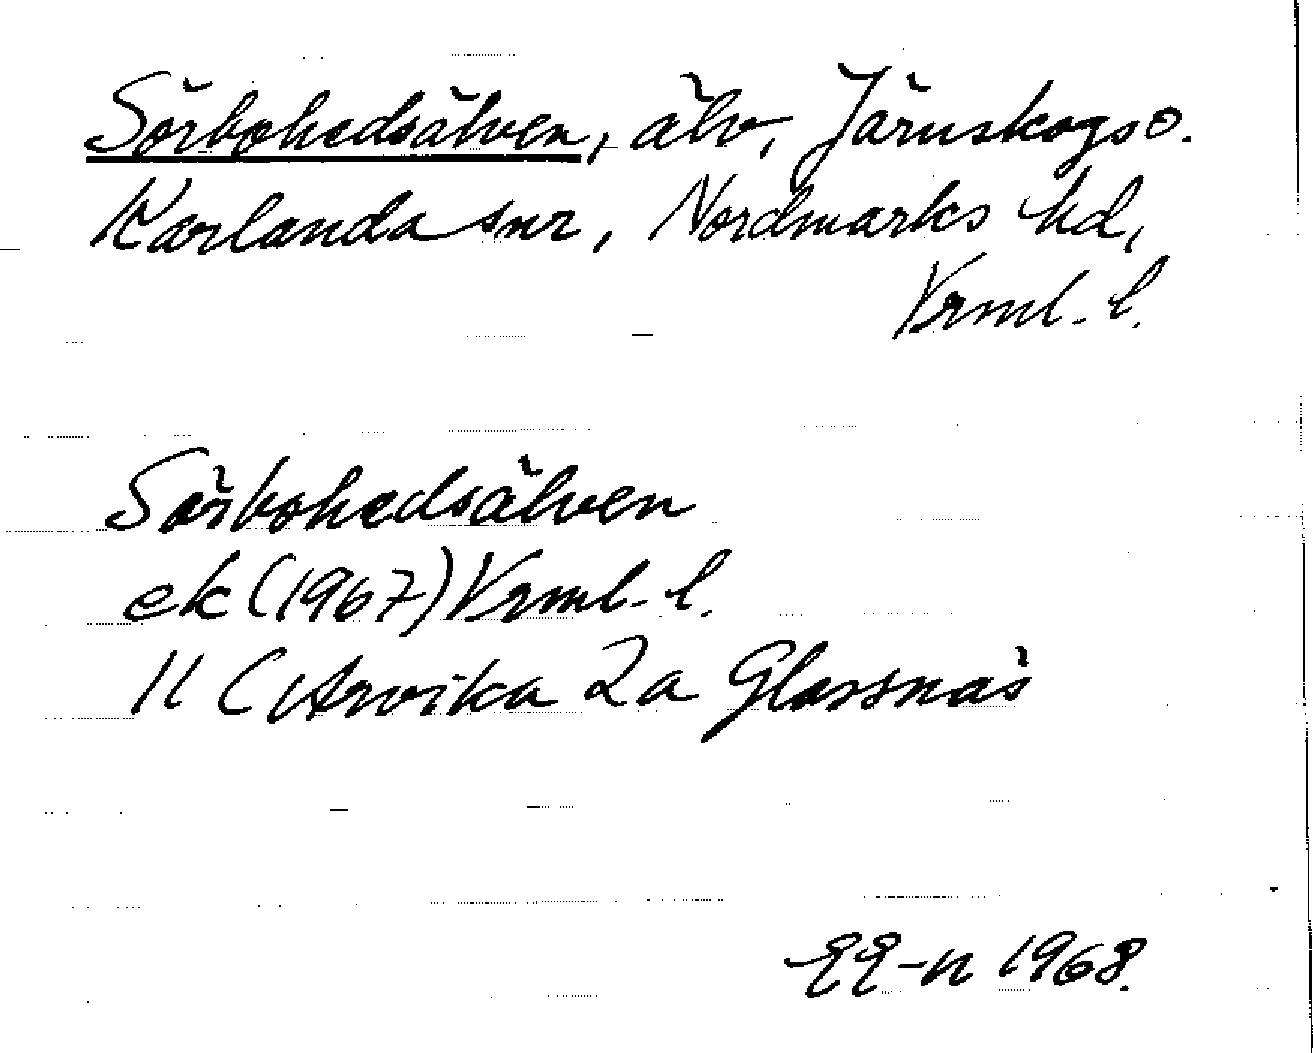 Sörbohedsälven, älv, Järnskogs o.
Karlanda snr, Nordmarks hd,
Vrml. l.
Sörbohedsälven
ek (1967) Vrml. l.
11 C Arvika 2a Glassnäs
1968.